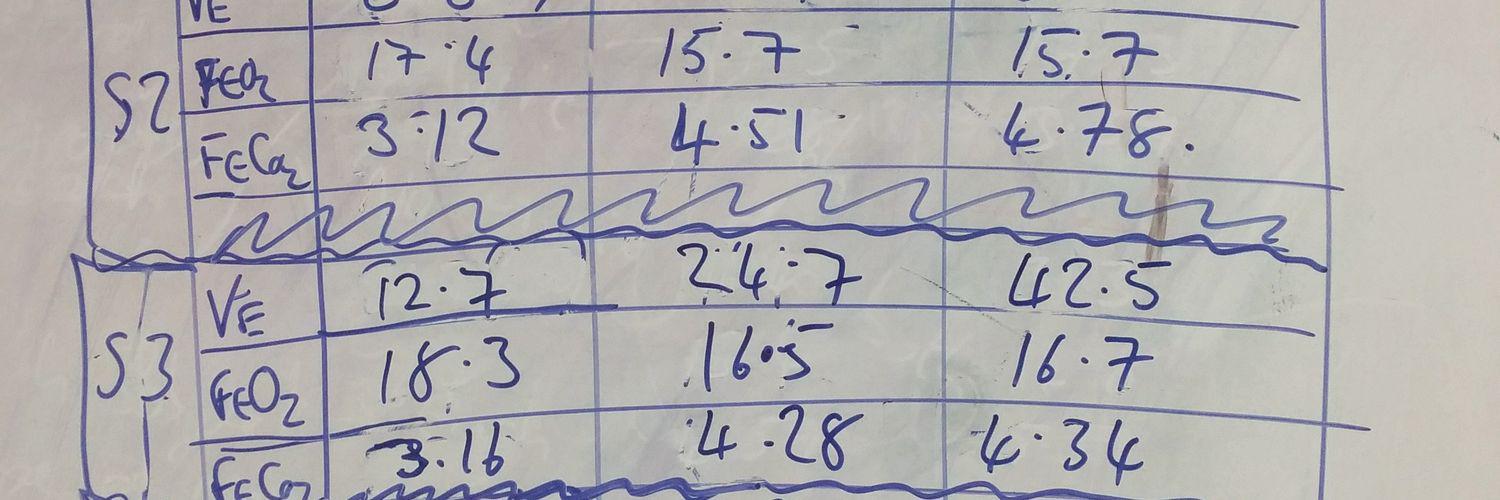 VE
S2
FEO2 17.4 15.7 15.7
FECO2 3.12 4.51 4.78.
S3
VE 12.7 24.7 42.5
FEO2 18.3 16.5 16.7
FECO2 3.16 4.28 4.34